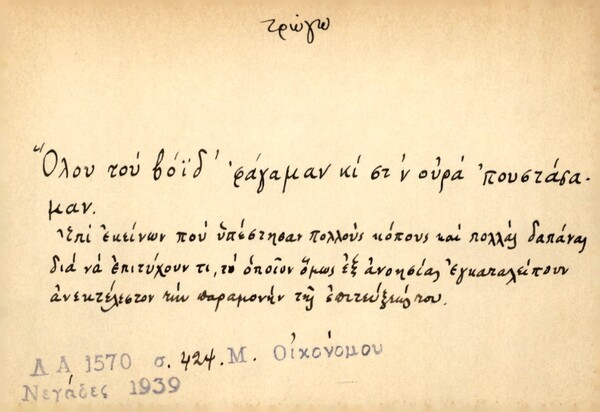 τρώγω
Ὅλου τοὺ βόϊδ' 'φάγαμαν κὶ στ'ν οὐρὰ 'πουστάσα-
μαν.
Ἐπὶ ἐκείνων ποὺ ὑπέστησαν πολλοὺς κόπους καὶ πολλὰς δαπάνας
διὰ νὰ ἐπιτύχουν τι, τὸ ὁποῖον ὅμως ἐξ ἀνοησίας ἐγκαταλείπουν
ἀνεκτέλεστον τὴν παραμονὴν τῆς ἐπιτεύξεώς του.
Λ Α 1570 σ. 424. Μ. Οἰκονόμου
Νεγάδες 1939